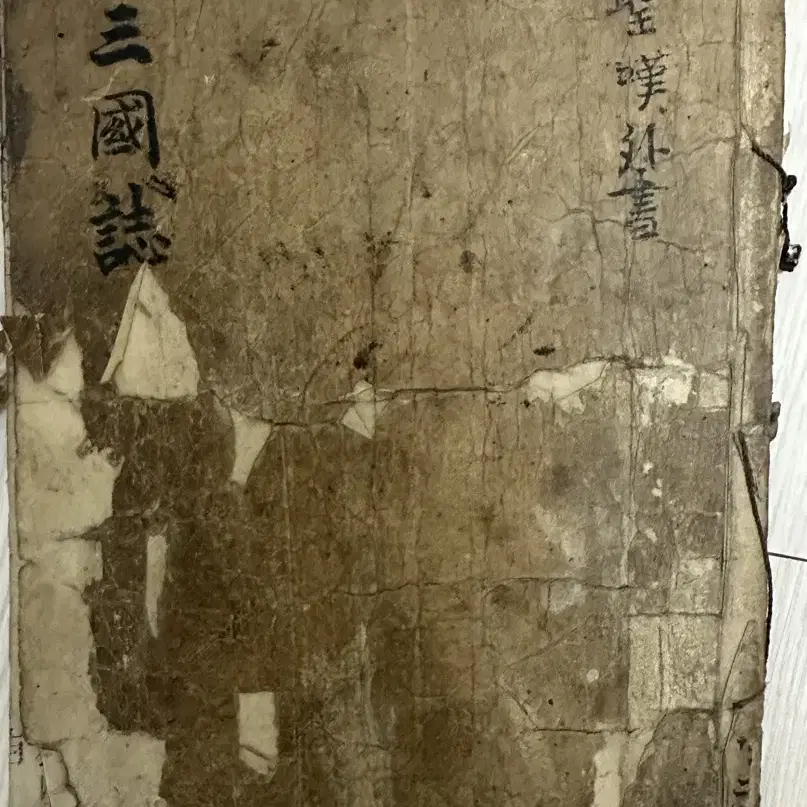 聖嘆外書
三國誌